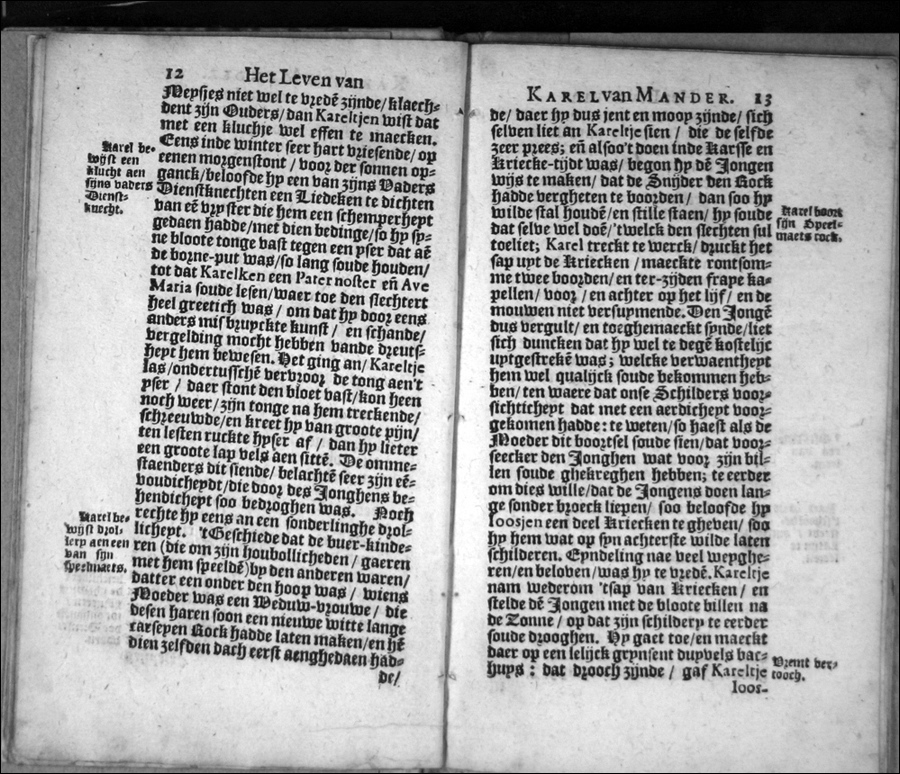 12 Het Leven van
Meysjes niet wel te vredē zijnde/ klaech-
dent zijn Ouders/ dan Kareltjen wist dat
met een kluchje wel effen te maecken.
Eens inde winter seer hart vriesende/ op
eenen morgenstont/ voor der sonnen op-
ganck/ beloofde hy een van zijns Vaders
Dienstknechten een Liedeken te dichten
van eē vryster die hem een schemperheyt
gedaen hadde/ met dien bedinge/ so hy sy-
ne bloote tonge vast tegen een yser dat aē
de borne-put was/ so lang soude houden/
tot dat Karelken een Pater noster eñ Ave
Maria soude lesen/ waer toe den slechtert
heel greetich was/ om dat hy door eens
anders misbruyckte kunst/ en schande/
vergelding mocht hebben vande dreuts-
heyt hem bewesen. Het ging an/ Kareltje
las/ ondertusschē vervroor de tong aen't
yser/ daer stont den bloet vast/ kon heen
noch weer/ zijn tonge na hem treckende/
schreeuwde/ en kreet hy van groote pijn/
ten lesten ruckte hyser af/ dan hy lieter
een groote lap vels aen sittē. De omme-
staenders dit siende/ belachtē seer zijn eē-
voudicheydt/ die door des Jonghens be-
hendicheyt soo bedroghen was. Noch
rechte hy eens an een sonderlinghe drol-
licheyt. 't Geschiede dat de buer-kinde-
ren (die om zijn houbollicheden/ gaeren
met hem speeldē) by den anderen waren/
datter een onder den hoop was/ wiens
Moeder was een Weduw-vrouwe/ die
desen haren soon een nieuwe witte lange
carseyen Rock hadde laten maken/ en hē
dien zelfden dach eerst aenghedaen had-
de/
Karel be-
wijst een
klucht aen
sijns vaders
Dienst-
knecht.
Karel be-
wijst drol-
lery aen een
van sijn
speelmaets.
KAREL van MANDER. 13
de/ daer hy dus jent en mooy zijnde/ sich
selven liet an Kareltje sien/ die de selfde
zeer prees; eñ alsoo't doen inde Karsse en
Kriecke-tijdt was/ begon hy dē Jongen
wijs te maken/ dat de Snijder den Rock
hadde vergheten te boorden/ dan soo hy
wilde stal houdē/ en stille staen/ hy soude
dat selve wel doē/ 'twelck den slechten sul
toeliet; Karel treckt te werck/ druckt het
sap uyt de Kriecken/ maeckte rontsom-
me twee boorden/ en ter-zijden fraye ka-
pellen/ voor/ en achter op het lijf/ en de
mouwen niet versuymende. Den Jongē
dus vergult/ en toeghemaeckt synde/ liet
sich duncken dat hy wel te degē kostelijc
uytgestrekē was; welcke verwaentheyt
hem wel qualijck soude bekommen heb-
ben/ ten waere dat onse Schilders voor-
sichticheyt dat met een aerdicheyt voor-
gekomen hadde: te weten/ so haest als de
Moeder dit boortsel soude sien/ dat voor-
seecker den Jonghen wat voor zijn bil-
len soude ghekreghen hebben; te eerder
om dies wille/ dat de Jongens doen lan-
ge sonder broeck liepen/ soo beloofde hy
loosjen een deel Kriecken te gheven/ soo
hy hem wat op syn achterste wilde laten
schilderen. Eyndeling nae veel weyghe-
ren/ en beloben/ was hy te vredē. Kareltje
nam wederom 'tsap van Kriecken/ en
stelde dē Jongen met de bloote billen na
de Zonne/ op dat zijn schildery te eerder
soude drooghen. Hy gaet toe/ en maeckt
daer op een lelijck grynsent duyvels bac-
huys: dat drooch zijnde/ gaf Kareltje
loos-
Karel boort
sijn Speel-
maets rock.
Vremt ver-
tooch.